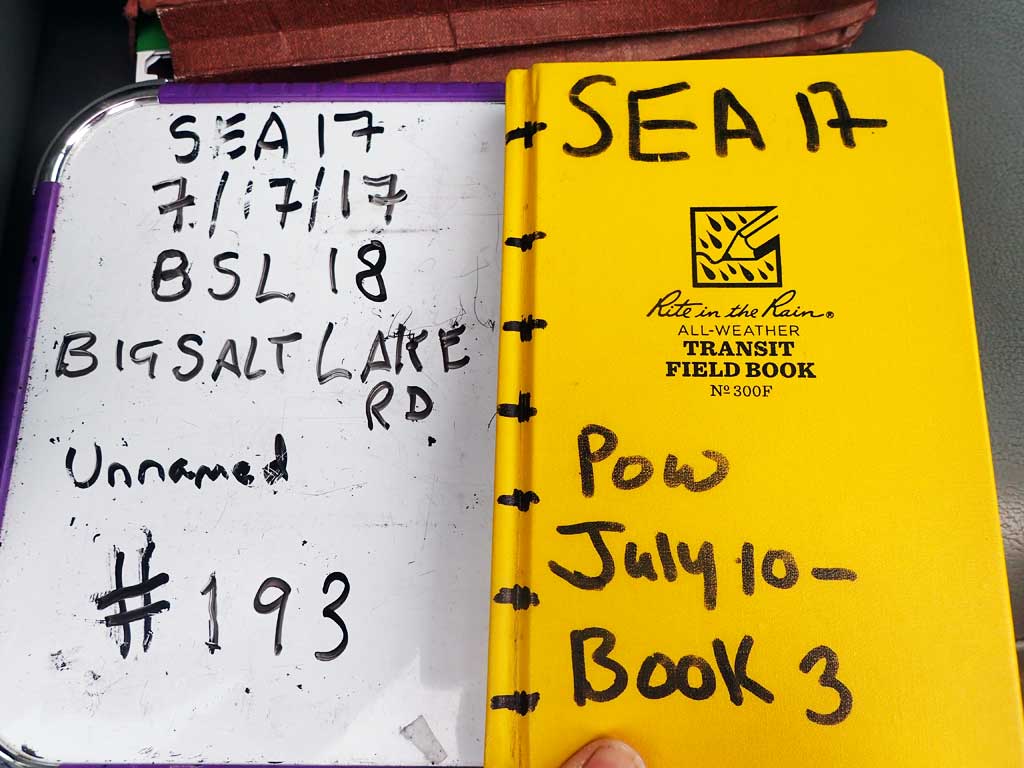 SEA 17
7/17/17
BSL 18
BIG SALT LAKE
RD
Unnamed
#193
SEA 17
Rite in the Rain®
ALL-WEATHER
TRANSIT
FIELD BOOK
Nº 300F
POW
July 10-
Book 3